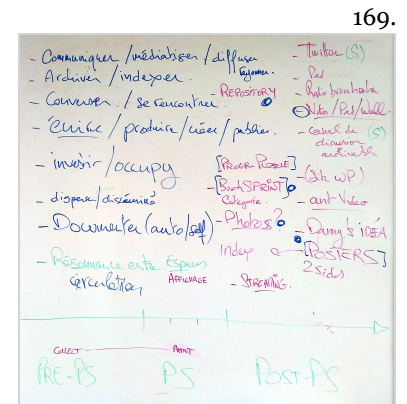 169.
- Communiquer / médiatiser / diffuser
- Archiver / indexer.
- Converser / se rencontrer.
- Écrire / produire / créer / publier.
- investir / occupy
- disperser / disséminé
- Documenter (auto/self)
- Résonnance entre Espaces
circulation
AFFICHAGE
- REPOSITORY
[PROGR PUZZLE]
- [BOOK SPRINT]
Categorie.
- Photos?
Index
- STREAMING.
- Twitter (S)
- Pad
- Radio
- Notes / Pad / Wall
- canal de (S)
diffusion
- (Site WP)
- Video
- Danny's IDEA
- [POSTERS]
2 sides
COLLECT
PRINT
PRE-PS
PS
POST-PS